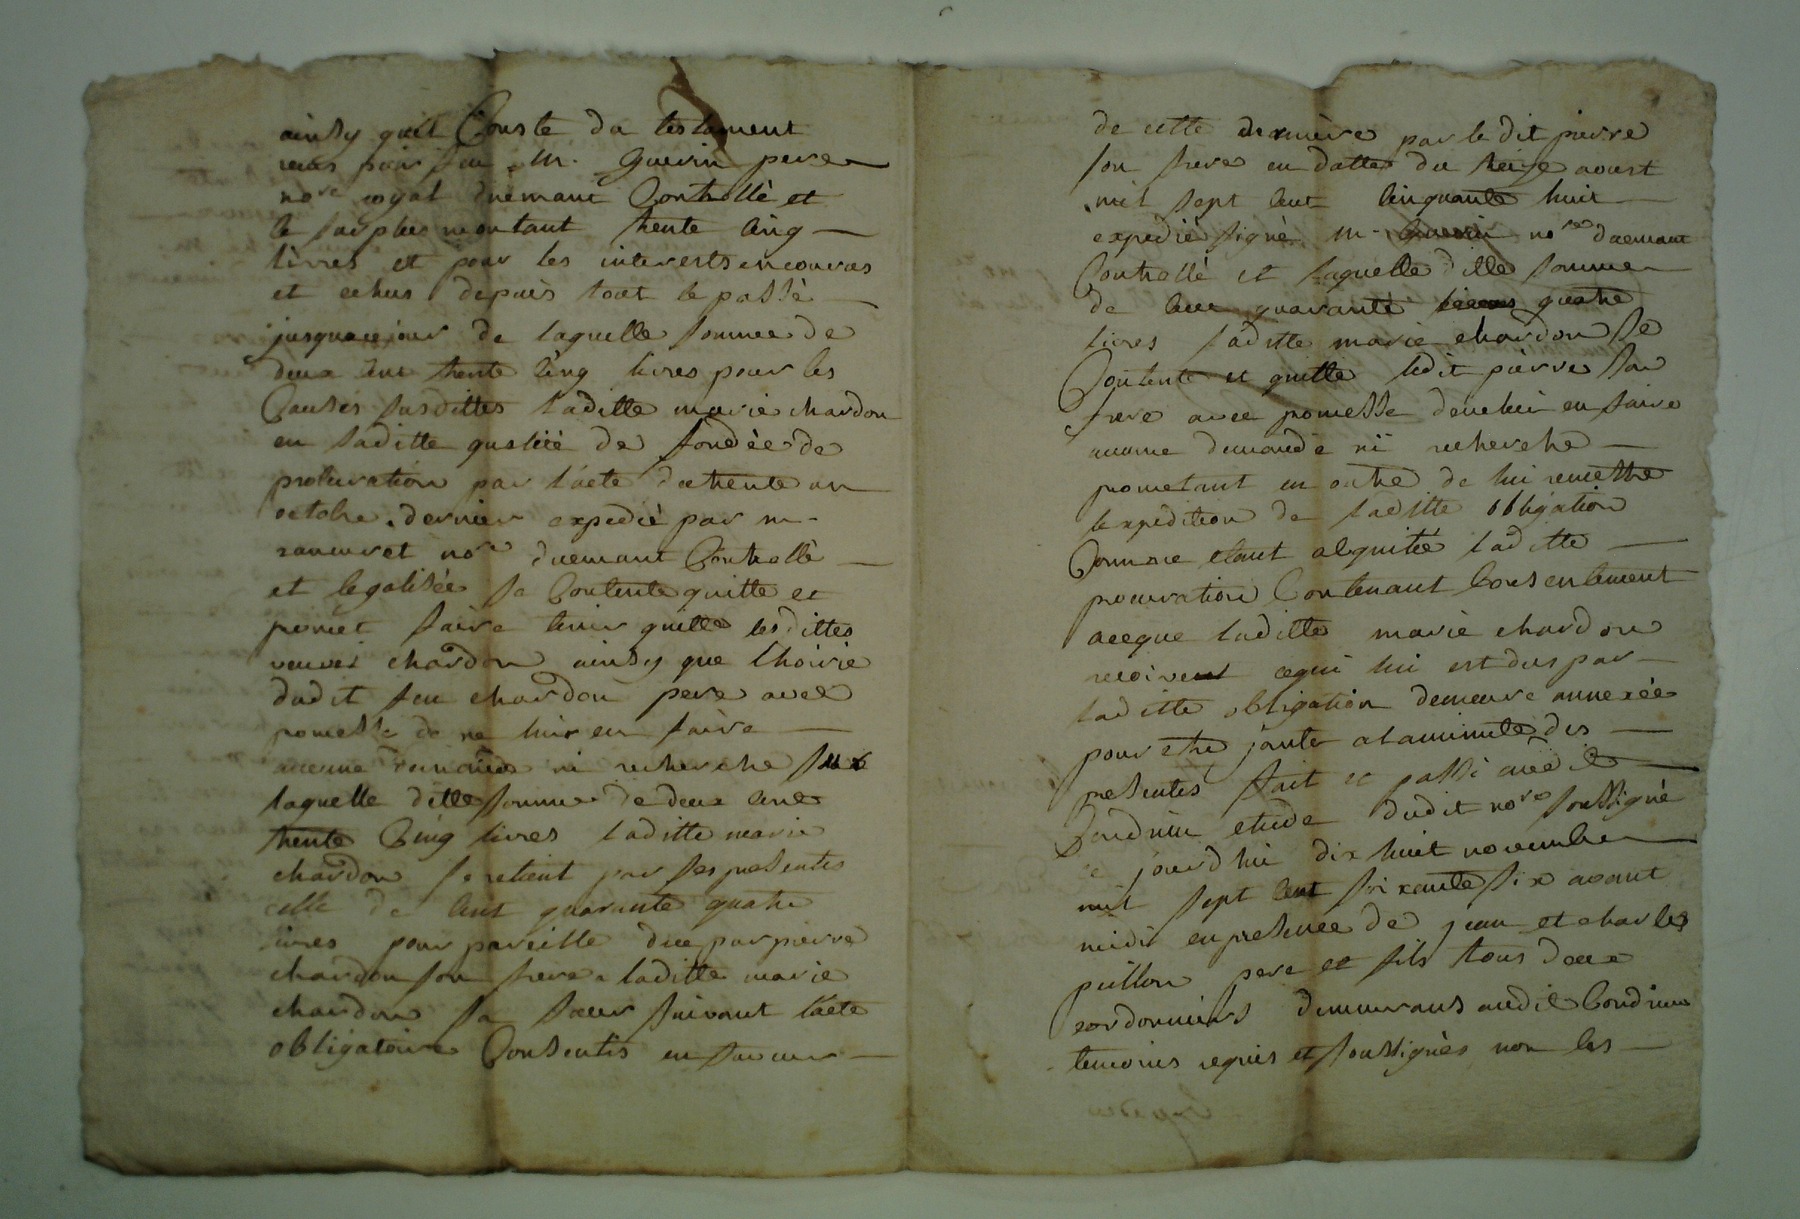 ainsy quil Conste du testament
reçus par feu M. Guerin pere
nore royal duemant Controllé et
le surplus montant trente cinq
livres et pour les interests encourus
et echus depuis tout le passé
jusquacejour de laquelle somme de
deux cent trente cinq livres pour les
Causes susdittes laditte marie chardon
en saditte qualité de fondée de
procuration par lacte du trente un
octobre dernier expedié par m.
nore duemant Controllé
et legalisée se Contente quitte et
promet faire tenir quitte lesdittes
veuves chardon ainsy que lhoirie
dudit feu chardon pere avec
promesse de ne luir en faire
aucune demande ni recherche sur
laquelle ditte somme de deux cent
trente Cinq livres laditte marie
chardon se retient par ses presentes
celle de cent quarante quatre
livres pour pareille due par pierre
chardon son frere a laditte marie
chardon sa sœur suivant lacte
obligatoire Consentis en faveur
de cette derniere par le dit pierre
son frere en datte du treize aoust
mil sept cent cinquante huit
expedié signé M. Guerin nore duemant
Controllé et laquelle ditte somme
de cent quarante quatre
livres laditte marie chardon se
Contente et quitte ledit pierre son
frere avec promesse de ne lui en faire
aucune demande ni recherche
prometant en outre de lui remettre
lexpedition de laditte obligation
Comme etant alquitée laditte
procuration Contenant Consentement
aceque laditte marie chardon
reçoivent cequi lui est dus par
laditte obligation demeure annexée
pour etre jointe alaminute des
presentes fait et passé audit
Condrieu etude dudit nore soussigné
ce jourdhui dix huit novembre
mil sept cent soixante six avant
midi en presence de jean et charles
pere et fils tous deux
cordonniers demeurans audit Condrieu
temoins requis et soussignés non les